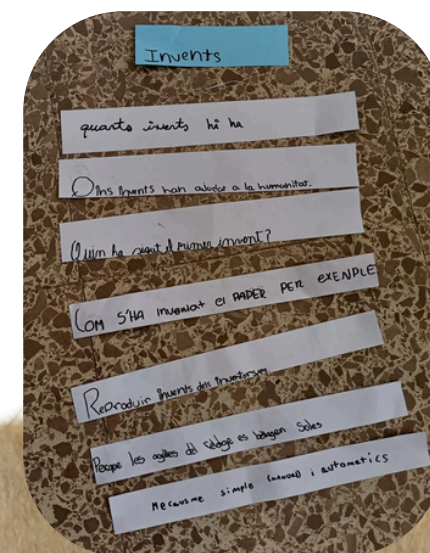 Invents
quants invents hi ha
Qins invents han ajudat a la humanitat.
Quin ha sigut el primer invent?
COM S'HA inventat el PAPER PER EXENPLE
Reproduir invents dels inventors
Perque les agulles del rellotge es belluguen Soles
Mecanisme simple (manual) i automatics